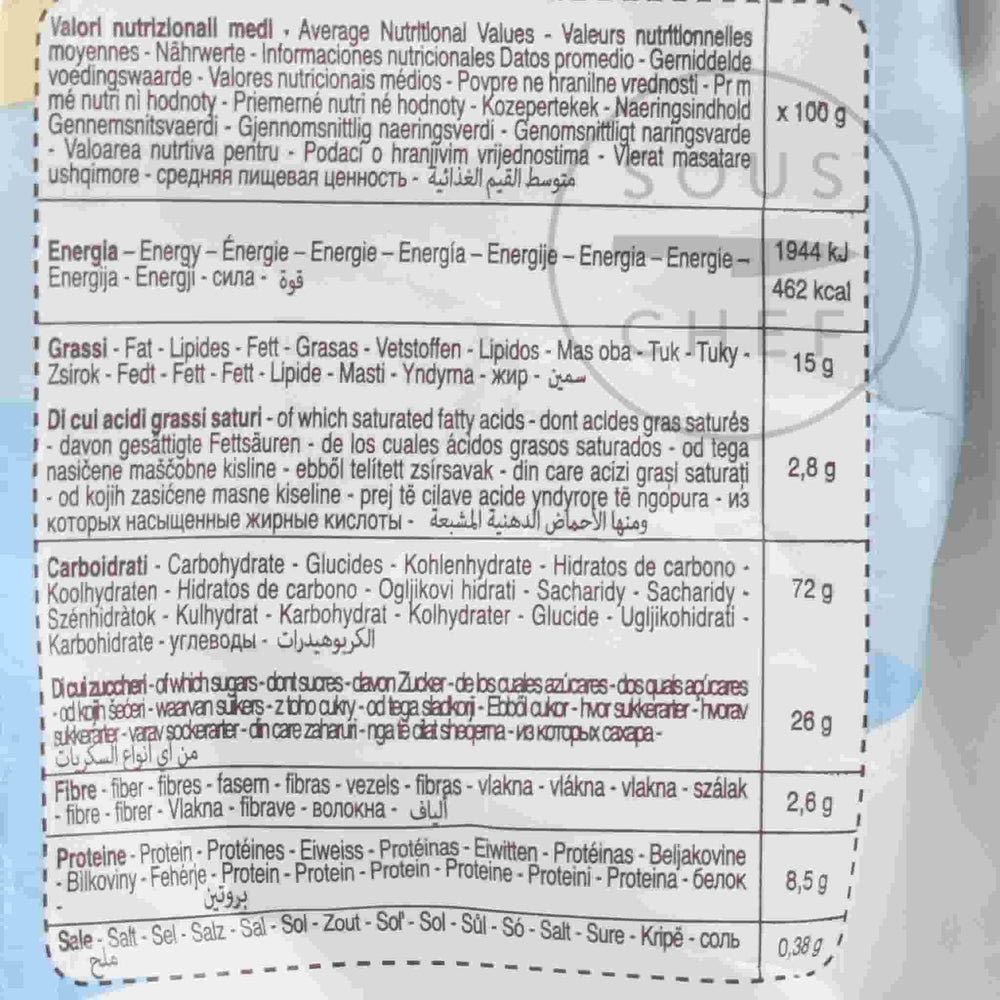 Valori nutrizionali medi - Average Nutritional Values - Valeurs nutritionnelles
moyennes - Nährwerte - Informaciones nutricionales Datos promedio - Gemiddelde
voedingswaarde - Valores nutricionais médios - Povpre ne hranilne vrednosti - Pr m
mé nutri ni hodnoty - Priemerné nutri né hodnoty - Kozepertekek - Naeringsindhold
Gennemsnitsvaerdi - Gjennomsnittlig naeringsverdi - Genomsnittligt naringsvarde
- Valoarea nutrtiva pentru - Podaci o hranjivim vrijednostima - Vlerat masatare
ushqimore - средняя пищевая ценность - متوسط القيم الغذائية
x 100 g
SOUS
CHEF
Energia – Energy – Énergie – Energie – Energía – Energije – Energia – Energie –
Energija - Energji - сила - قوة
1944 kJ
462 kcal
Grassi - Fat - Lipides - Fett - Grasas - Vetstoffen - Lipidos - Mas oba - Tuk - Tuky -
Zsirok - Fedt - Fett - Fett - Lipide - Masti - Yndyrna - жир - سمين
15 g
Di cui acidi grassi saturi - of which saturated fatty acids - dont acides gras saturés
- davon gesättigte Fettsäuren - de los cuales ácidos grasos saturados - od tega
nasičene maščobne kisline - ebből telített zsírsavak - din care acizi grași saturați
- od kojih zasićene masne kiseline - prej të cilave acide yndyrore të ngopura - из
которых насыщенные жирные кислоты - ومنها الأحماض الدهنية المشبعة
2,8 g
Carboidrati - Carbohydrate - Glucides - Kohlenhydrate - Hidratos de carbono -
Koolhydraten - Hidratos de carbono - Ogljikovi hidrati - Sacharidy - Sacharidy -
Szénhidràtok - Kulhydrat - Karbohydrat - Kolhydrater - Glucide - Ugljikohidrati -
Karbohidrate - углеводы - الكربوهيدرات
72 g
Di cui zuccheri - of which sugars - dont sucres - davon Zucker - de los cuales azúcares - dos quais açúcares
- od kojih šećeri - waarvan suikers - z toho cukry - od tega sladkorj - Ebből cukor - hvor sukkerarter - hvorav
sukkerarter - varav sockerarter - din care zaharuri - nga të cilat sheqerna - из которых сахара -
من أي أنواع السكريات
26 g
Fibre - fiber - fibres - fasern - fibras - vezels - fibras - vlakna - vlákna - vlakna - szálak
- fibre - fibrer - Vlakna - fibrave - волокна - ألياف
2,6 g
Proteine - Protein - Protéines - Eiweiss - Protéinas - Eiwitten - Protéinas - Beljakovine
- Bilkoviny - Fehérje - Protein - Protein - Protein - Proteine - Proteini - Proteina - белок
- بروتين
8,5 g
Sale - Salt - Sel - Salz - Sal - Sol - Zout - Sol' - Sol - Sůl - Só - Salt - Sure - Kripë - соль
ملح
0,38 g